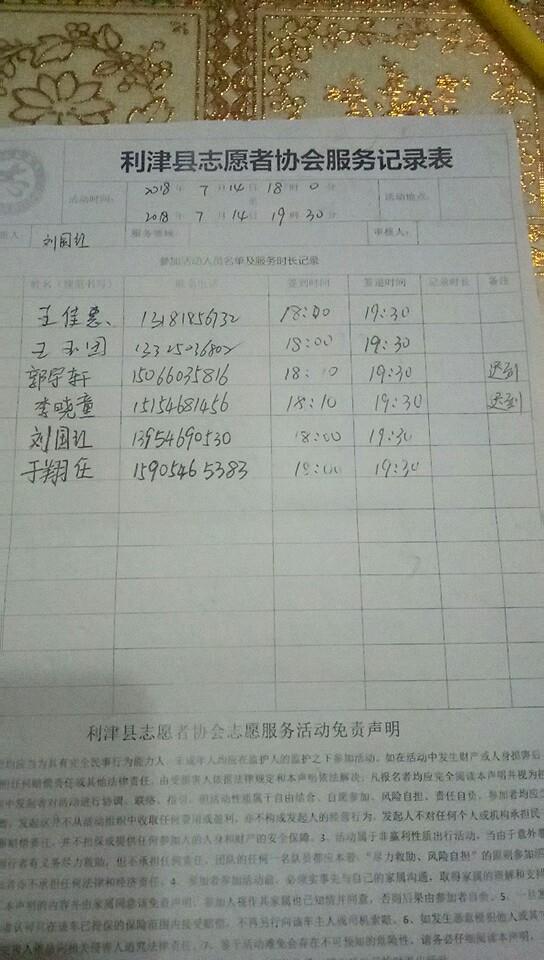 利津县志愿者协会服务记录表
活动时间: 2018 年 7 月 14 日 18 时 0 分 活动地点:
至
2018 年 7 月 14 日 19 时 30 分
刘国红 服务领域: 审核人:
参加活动人员名单及服务时长记录
姓名(规范书写) 联系电话 签到时间 签退时间 记录时长 备注
王佳惠 13181856732 18:00 19:30
王玉国 18:00 19:30
郭宇轩 15066035816 18:10 19:30 迟到
李晓童 15154681456 18:10 19:30 迟到
刘国红 13954690530 18:00 19:30
于翔任 15905465383 18:00 19:30
利津县志愿者协会志愿服务活动免责声明
均应当为具有完全民事行为能力人,未成年人均应在监护人的监护之下参加活动。如在活动中发生财产或人身损害后
担任何赔偿责任或其他法律责任,由受损害人依据法律规定和本声明依法解决,凡报名者均应完全阅读本声明并视为
中发起者对活动进行协调、联络、指引,但活动性质属于自由结合、自现参加、风险自担、责任自负,参加者均应
,发起队并不从活动组织中收取任何费用或盈利,亦不构成发起人的经营行为,发起人不对任何个人或机构承担
赔偿责任,并不担保或提供任何参加人的人身和财产的安全保障。3、活动属于非赢利性质出行活动,当由于意外
同行者有义务尽力救助,但不承担任何责任,团队的任何一名队员都应本着“尽力救助、风险自担”的原则参加
者亦不承担任何法律和经济责任。4、参加者参加活动前,必须事先与自己的家属沟通,取得家属的谅解和支
本声明的内容并由家属同意该免责声明,参加人视作其家属也已知情并同意,否则后果由参加者自负。5、一旦
者认可只在该车已担保的保险范围内接受赔偿,不再另行向该车主人或司机索赔。6、如发生恶意侵犯他人或其
受害人依法向相关侵害人追究法律责任。7、鉴于活动难免会存在不可预知的危险性,请务必仔细阅读本声明,